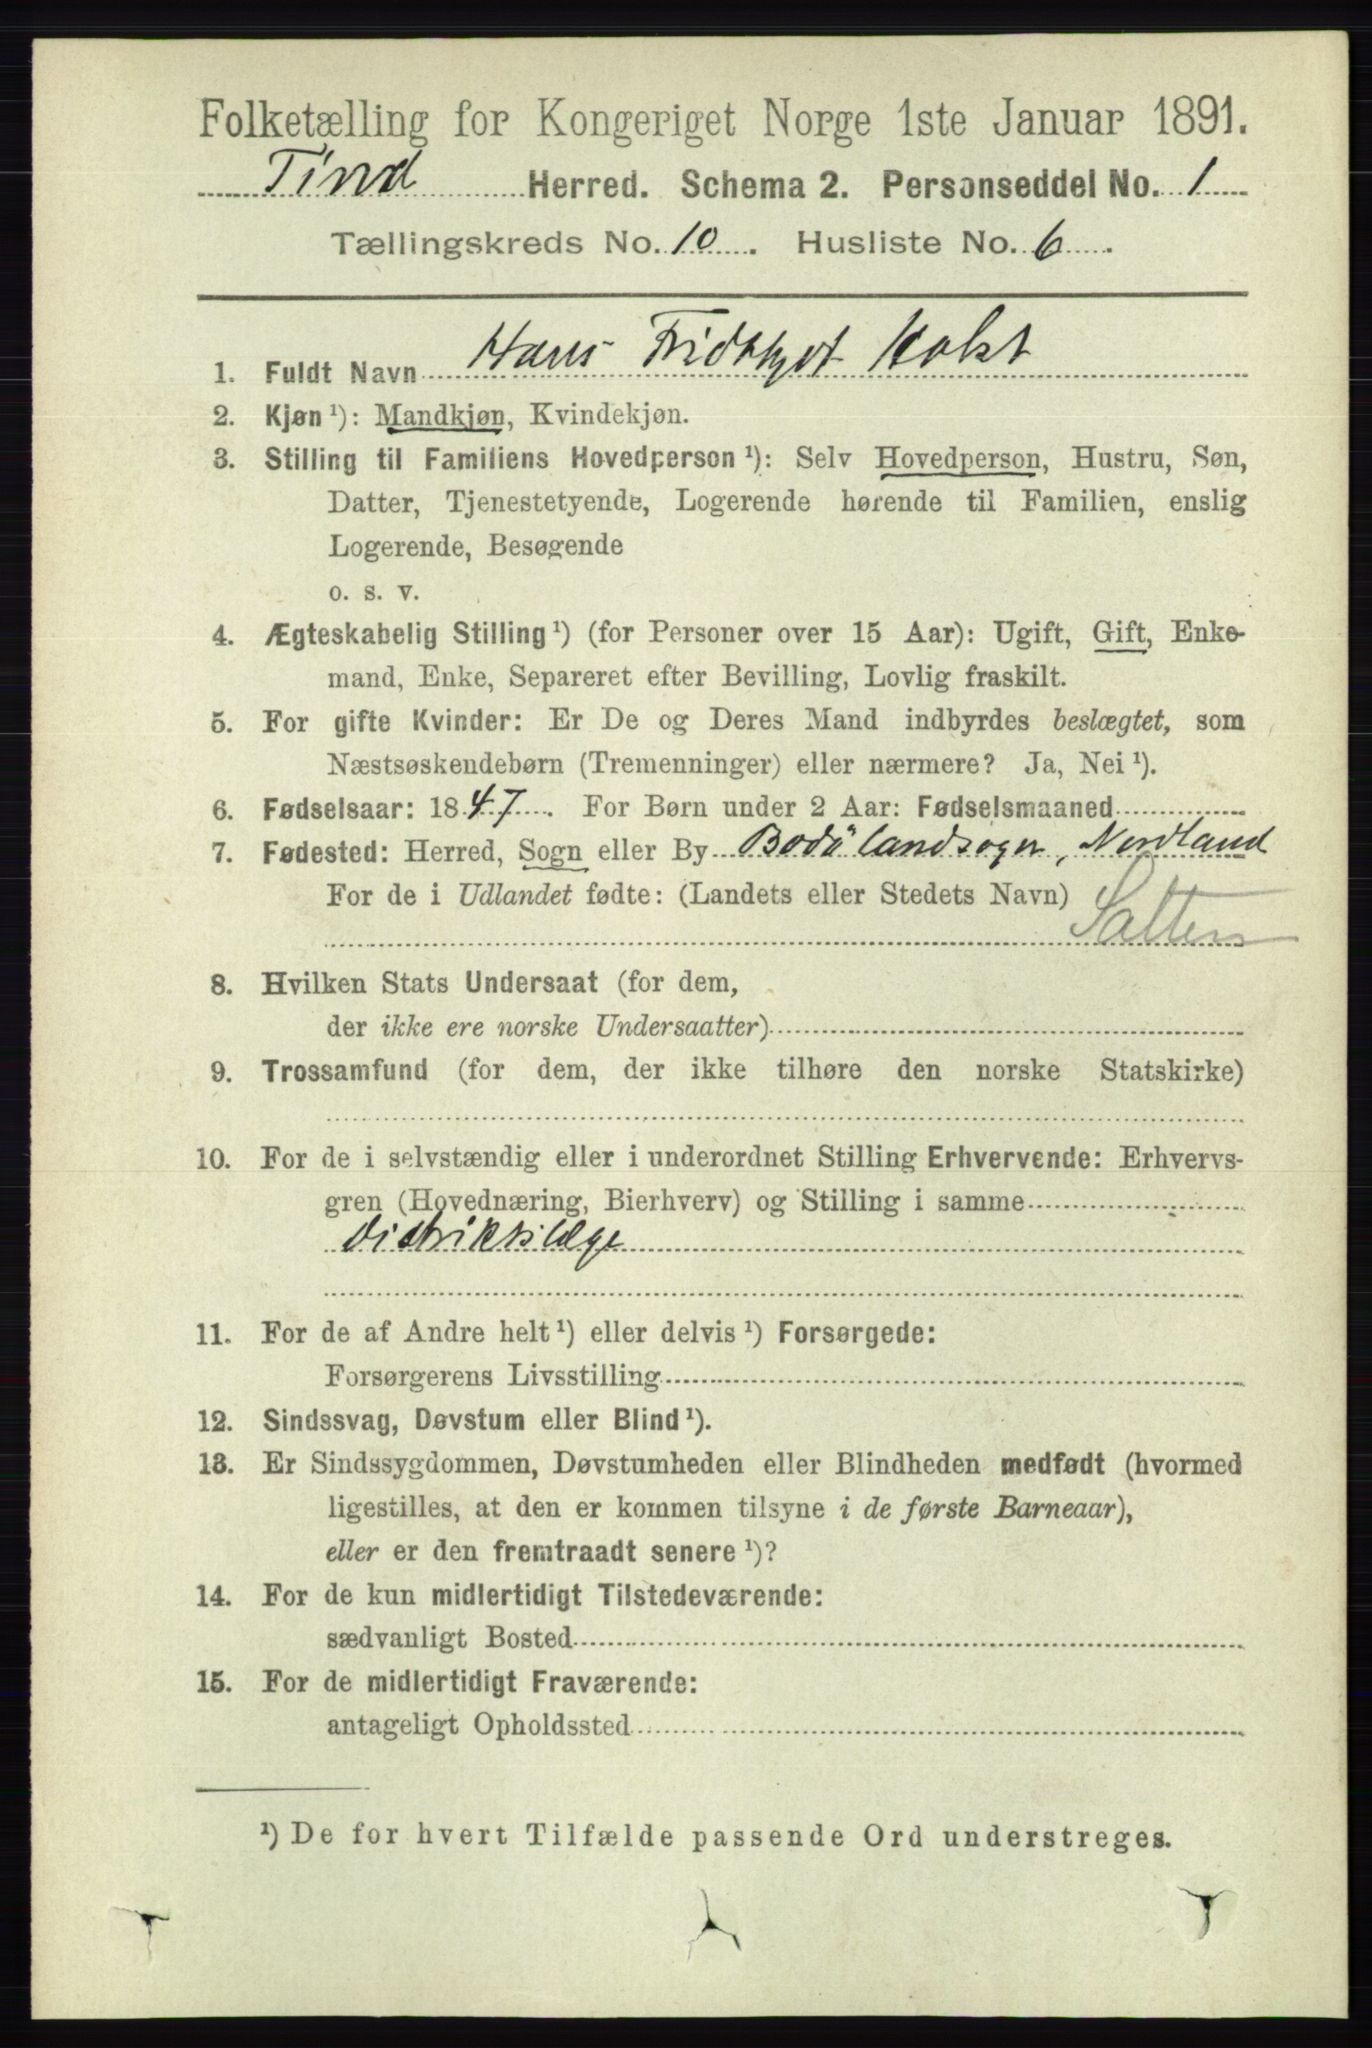 Folketælling for Kongeriget Norge 1ste Januar 1891.
Tind Herred. Schema 2. Personseddel No. 1
Tællingskreds No. 10. Husliste No. 6.
1. Fuldt Navn Hans Fridthjof Holst
2. Kjøn ¹): Mandkjøn, Kvindekjøn.
3. Stilling til Familiens Hovedperson ¹): Selv Hovedperson, Hustru, Søn,
Datter, Tjenestetyende, Logerende hørende til Familien, enslig
Logerende, Besøgende
o. s. v.
4. Ægteskabelig Stilling ¹) (for Personer over 15 Aar): Ugift, Gift, Enke-
mand, Enke, Separeret efter Bevilling, Lovlig fraskilt.
5. For gifte Kvinder: Er De og Deres Mand indbyrdes beslægtet, som
Næstsøskendebørn (Tremenninger) eller nærmere? Ja, Nei ¹).
6. Fødselsaar: 1847. For Børn under 2 Aar: Fødselsmaaned
7. Fødested: Herred, Sogn eller By Bodö landsogn, Nordland
For de i Udlandet fødte: (Landets eller Stedets Navn)
Salten
8. Hvilken Stats Undersaat (for dem,
der ikke ere norske Undersaatter)
9. Trossamfund (for dem, der ikke tilhøre den norske Statskirke)
10. For de i selvstændig eller i underordnet Stilling Erhvervende: Erhvervs-
gren (Hovednæring, Bierhverv) og Stilling i samme
Distriktslæge
11. For de af Andre helt ¹) eller delvis ¹) Forsørgede:
Forsørgerens Livsstilling
12. Sindssvag, Døvstum eller Blind ¹).
13. Er Sindssygdommen, Døvstumheden eller Blindheden medfødt (hvormed
ligestilles, at den er kommen tilsyne i de første Barneaar),
eller er den fremtraadt senere ¹)?
14. For de kun midlertidigt Tilstedeværende:
sædvanligt Bosted
15. For de midlertidigt Fraværende:
antageligt Opholdssted
¹) De for hvert Tilfælde passende Ord understreges.